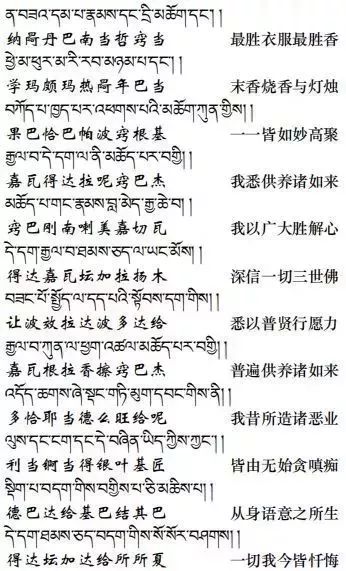 ན་བཟའ་དམ་པ་རྣམས་དང་དྲི་མཆོག་དང་། །
纳当丹巴南当哲窍当 最胜衣服最胜香
ཕྱེ་མཕུར་མ་རི་རབ་མཉམ་པ་དང་། །
学玛颇玛热 年巴当 末香烧香与灯烛
བཀོད་པ་ཁྱད་པར་འཕགས་པའི་མཆོག་ཀུན་གྱིས། །
果巴恰巴帕波窍根基 一一皆如妙高聚
རྒྱལ་བ་དེ་དག་ལ་ནི་མཆོད་པར་བགྱི། །
嘉瓦得达拉呢窍巴杰 我悉供养诸如来
མཆོད་པ་གང་རྣམས་བླ་མེད་རྒྱ་ཆེ་བ། །
窍巴刚南喇美嘉切瓦 我以广大胜解心
དེ་དག་རྒྱལ་བ་ཐམས་ཅད་ལ་ཡང་མོས། །
得达嘉瓦坛加拉扬木 深信一切三世佛
བཟང་པོ་སྤྱོད་ལ་དད་པའི་སྟོབས་དག་གིས། །
让波效拉达波多达给 悉以普贤行愿力
རྒྱལ་བ་ཀུན་ལ་ཕྱག་འཚལ་མཆོད་པར་བགྱི། །
嘉瓦根拉香擦窍巴杰 普遍供养诸如来
འདོད་ཆགས་ཞེ་སྡང་གཏི་མུག་དབང་གིས་ནི། །
多恰耶当德么旺给呢 我昔所造诸恶业
ལུས་དང་ངག་དང་དེ་བཞིན་ཡིད་ཀྱིས་ཀྱང་། །
利当 当得银叶基匠 皆由无始贪嗔痴
སྡིག་པ་བདག་གིས་བགྱིས་པ་ཅི་མཆིས་པ། །
德巴达给基巴结其巴 从身语意之所生
དེ་དག་ཐམས་ཅད་བདག་གིས་སོ་སོར་བཤགས། །
得达坛加达给所所夏 一切我今皆忏悔